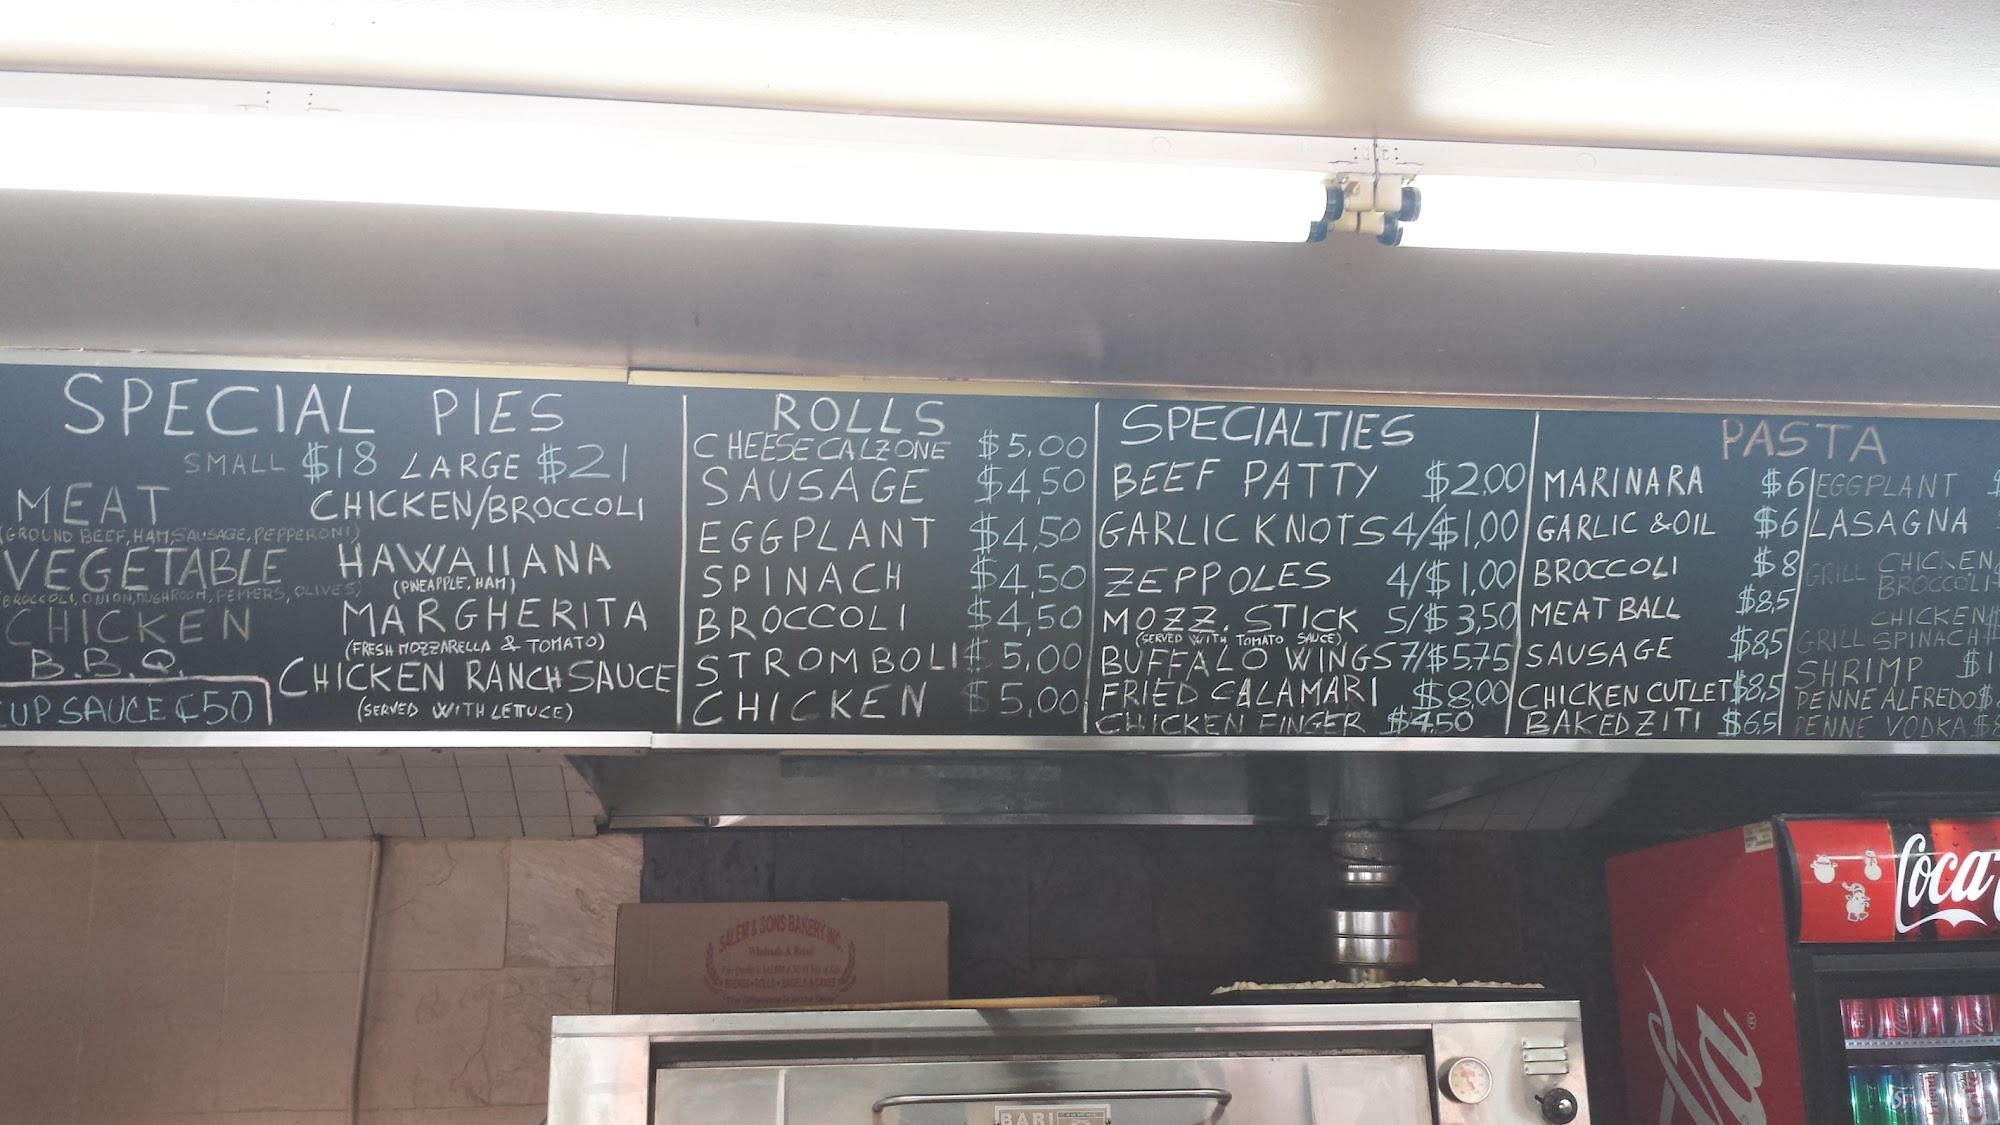 SPECIAL PIES
SMALL $18 LARGE $21
MEAT
(GROUND BEEF, HAM, SAUSAGE, PEPPERONI)
VEGETABLE
(BROCCOLI, ONION, MUSHROOM, PEPPERS, OLIVES)
CHICKEN
B.B.Q.
CUP SAUCE ¢50
CHICKEN/BROCCOLI
HAWAIIANA
(PINEAPPLE, HAM)
MARGHERITA
(FRESH MOZZARELLA & TOMATO)
CHICKEN RANCH SAUCE
(SERVED WITH LETTUCE)
ROLLS
CHEESE CALZONE $5,00
SAUSAGE $4,50
EGGPLANT $4,50
SPINACH $4,50
BROCCOLI $4,50
STROMBOLI $5,00
CHICKEN $5,00
SPECIALTIES
BEEF PATTY $2,00
GARLIC KNOTS 4/$1,00
ZEPPOLES 4/$1,00
MOZZ. STICK 5/$3,50
(SERVED WITH TOMATO SAUCE)
BUFFALO WINGS 7/$5,75
FRIED CALAMARI $8,00
CHICKEN FINGER $4,50
PASTA
MARINARA $6
GARLIC & OIL $6
BROCCOLI $8
MEAT BALL $8,5
SAUSAGE $8,5
CHICKEN CUTLET $8,5
BAKED ZITI $6,5
EGGPLANT $
LASAGNA
GRILL CHICKEN
BROCCOLI
CHICKEN $
GRILL SPINACH
SHRIMP $1
PENNE ALFREDO $
PENNE VODKA $
SALEM & SONS BAKERY INC.
Wholesale & Retail
BREADS • ROLLS • BAGELS & CAKES
BARI
Coca